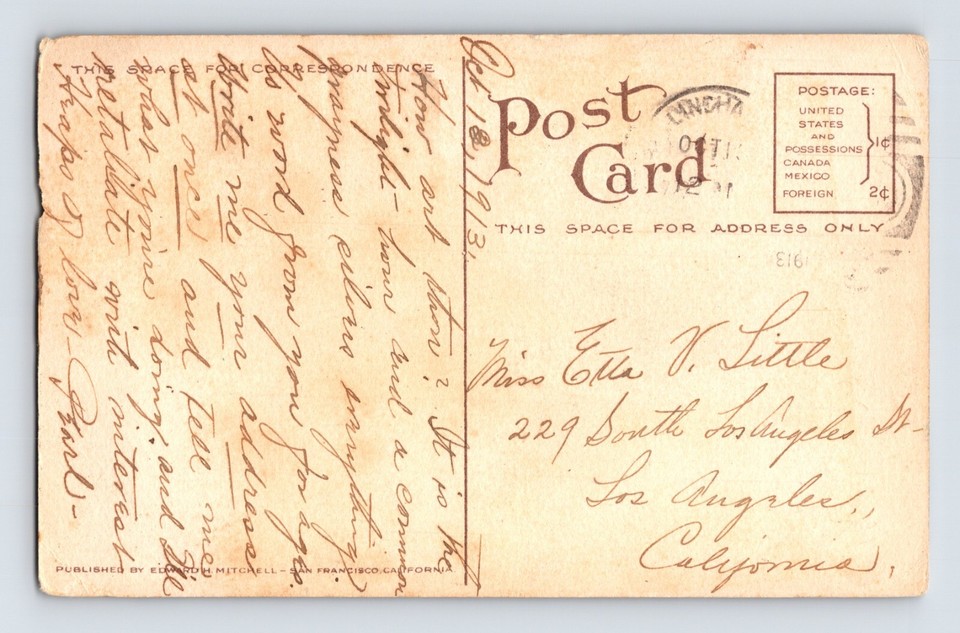 THIS SPACE FOR CORRESPONDENCE
Oct 18, 1913,
How art thou? It is the
twilight – hour and a common
grayness covers everything
word from you for ages.
Write me your address
at once, and tell me
what you're doing, and I'll
retaliate with interest
Heaps of love – Pearl –
PUBLISHED BY EDWARD H. MITCHELL – SAN FRANCISCO, CALIFORNIA
Post
Card
THIS SPACE FOR ADDRESS ONLY
LINGHA
OCT 1
POSTAGE:
UNITED
STATES
AND
POSSESSIONS 1¢
CANADA
MEXICO
FOREIGN 2¢
Miss Etta V. Little
229 South Los Angeles St–
Los Angeles,
California,